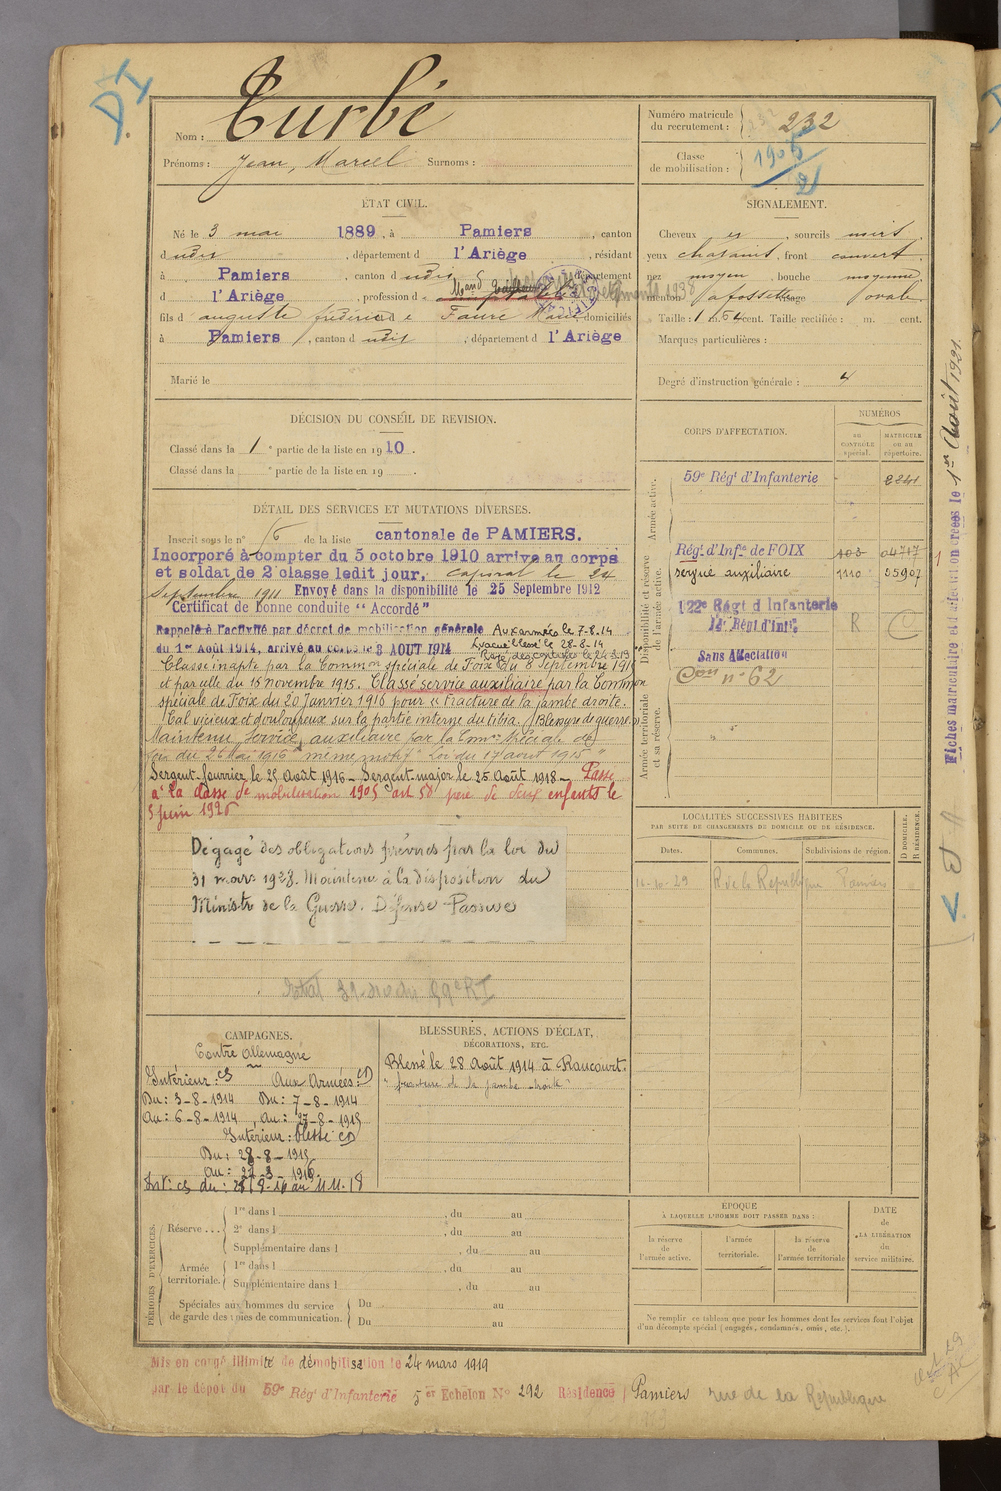 D I
Nom : Turbé
Prénoms : Jean, Marcel Surnoms :
Numéro matricule du recrutement : 232
Classe de mobilisation : 1905
ÉTAT CIVIL.
Né le 3 mai 1889, à Pamiers, canton
d udit, département d l'Ariège, résidant
à Pamiers, canton d udit, département
d l'Ariège, profession d
fils d auguste frédéric et de Faure Marie domiciliés
à Pamiers, canton d udit, département d l'Ariège
Marié le
SIGNALEMENT.
Cheveux et, sourcils noirs,
yeux chatains, front couvert,
nez moyen, bouche moyenne,
menton à fossette visage ovale
Taille : 1 m. 64 cent. Taille rectifiée : m. cent.
Marques particulières :
Degré d'instruction générale : 4
DÉCISION DU CONSEIL DE REVISION.
Classé dans la 1e partie de la liste en 1910.
Classé dans la e partie de la liste en 19 .
CORPS D'AFFECTATION.
NUMÉROS
AU CONTRÔLE spécial.
MATRICULE ou au répertoire.
Armée active.
59e Régt d'Infanterie
Disponibilité et réserve de l'armée active.
Régt d'Infie de FOIX 04717
service auxiliaire 1110 55907
122e Régt d'Infanterie R C
14e Régt d'Infie
Sans Affectation
Con n° 62
Armée territoriale et sa réserve.
DÉTAIL DES SERVICES ET MUTATIONS DIVERSES.
Inscrit sous le n° 16 de la liste cantonale de PAMIERS.
Incorporé à compter du 5 octobre 1910 arrivé au corps
et soldat de 2e classe ledit jour, caporal le 24
Septembre 1911 Envoyé dans la disponibilité le 25 Septembre 1912
Certificat de bonne conduite "Accordé"
Rappelé à l'activité par décret de mobilisation générale Aux armées le 7-8-14
du 1er Août 1914, arrivé au corps le 3 AOUT 1914 Evacué blessé le 28-8-14
Classé inapte par la Common spéciale de Foix du 8 Septembre 1915
et par celle du 16 novembre 1915. Classé service auxiliaire par la Common
spéciale de Foix du 20 Janvier 1916 pour « Fracture de la jambe droite.
Cal vicieux et douloureux sur la partie interne du tibia. (Blessure de guerre)
Maintenu Service auxiliaire par la Cmon Spéciale de
Foix du 26 Mai 1916 même motif "Loi du 17 août 1915"
Sergent-fourrier le 25 Août 1916 – Sergent-major le 25 Août 1918 – Passé
à la classe de mobilisation 1905 art 58 père de deux enfants le
5 juin 1926
Dégagé des obligations prévues par la loi du
31 mars 1928. Maintenu à la disposition du
Ministre de la Guerre. Défense Passive
LOCALITÉS SUCCESSIVES HABITÉES
PAR SUITE DE CHANGEMENTS DE DOMICILE OU DE RÉSIDENCE.
Dates. Communes. Subdivisions de région.
D DOMICILE. R RÉSIDENCE.
R de la République Pamiers
Fiches matriculaire et d'affectation créées le 1er Août 1921.
CAMPAGNES.
Contre Allemagne
Intérieur : CS Aux Armées : CD
Du : 3-8-1914 Du : 7-8-1914
Au : 6-8-1914 Au : 27-8-1915
Intérieur : blessé CD
Du : 28-8-1915
Int : CS du
BLESSURES, ACTIONS D'ÉCLAT,
DÉCORATIONS, ETC.
Blessé le 28 Août 1914 à Raucourt.
"fracture de la jambe droite"
PÉRIODES D'EXERCICES.
Réserve ... 1re dans l , du au
2e dans l , du au
Supplémentaire dans l , du au
Armée territoriale. 1re dans l , du au
Supplémentaire dans l , du au
Spéciales aux hommes du service de garde des voies de communication. Du au
Du au
ÉPOQUE
À LAQUELLE L'HOMME DOIT PASSER DANS :
la réserve de l'armée active.
l'armée territoriale.
la réserve de l'armée territoriale
DATE de LA LIBÉRATION du service militaire.
Ne remplir ce tableau que pour les hommes dont les services font l'objet
d'un décompte spécial (engagés, condamnés, omis, etc.).
Mis en congé illimité de démobilisation le 24 mars 1919
par le dépôt du 59e Régt d'Infanterie 5er Echelon N° 292 Résidence Pamiers rue de la République